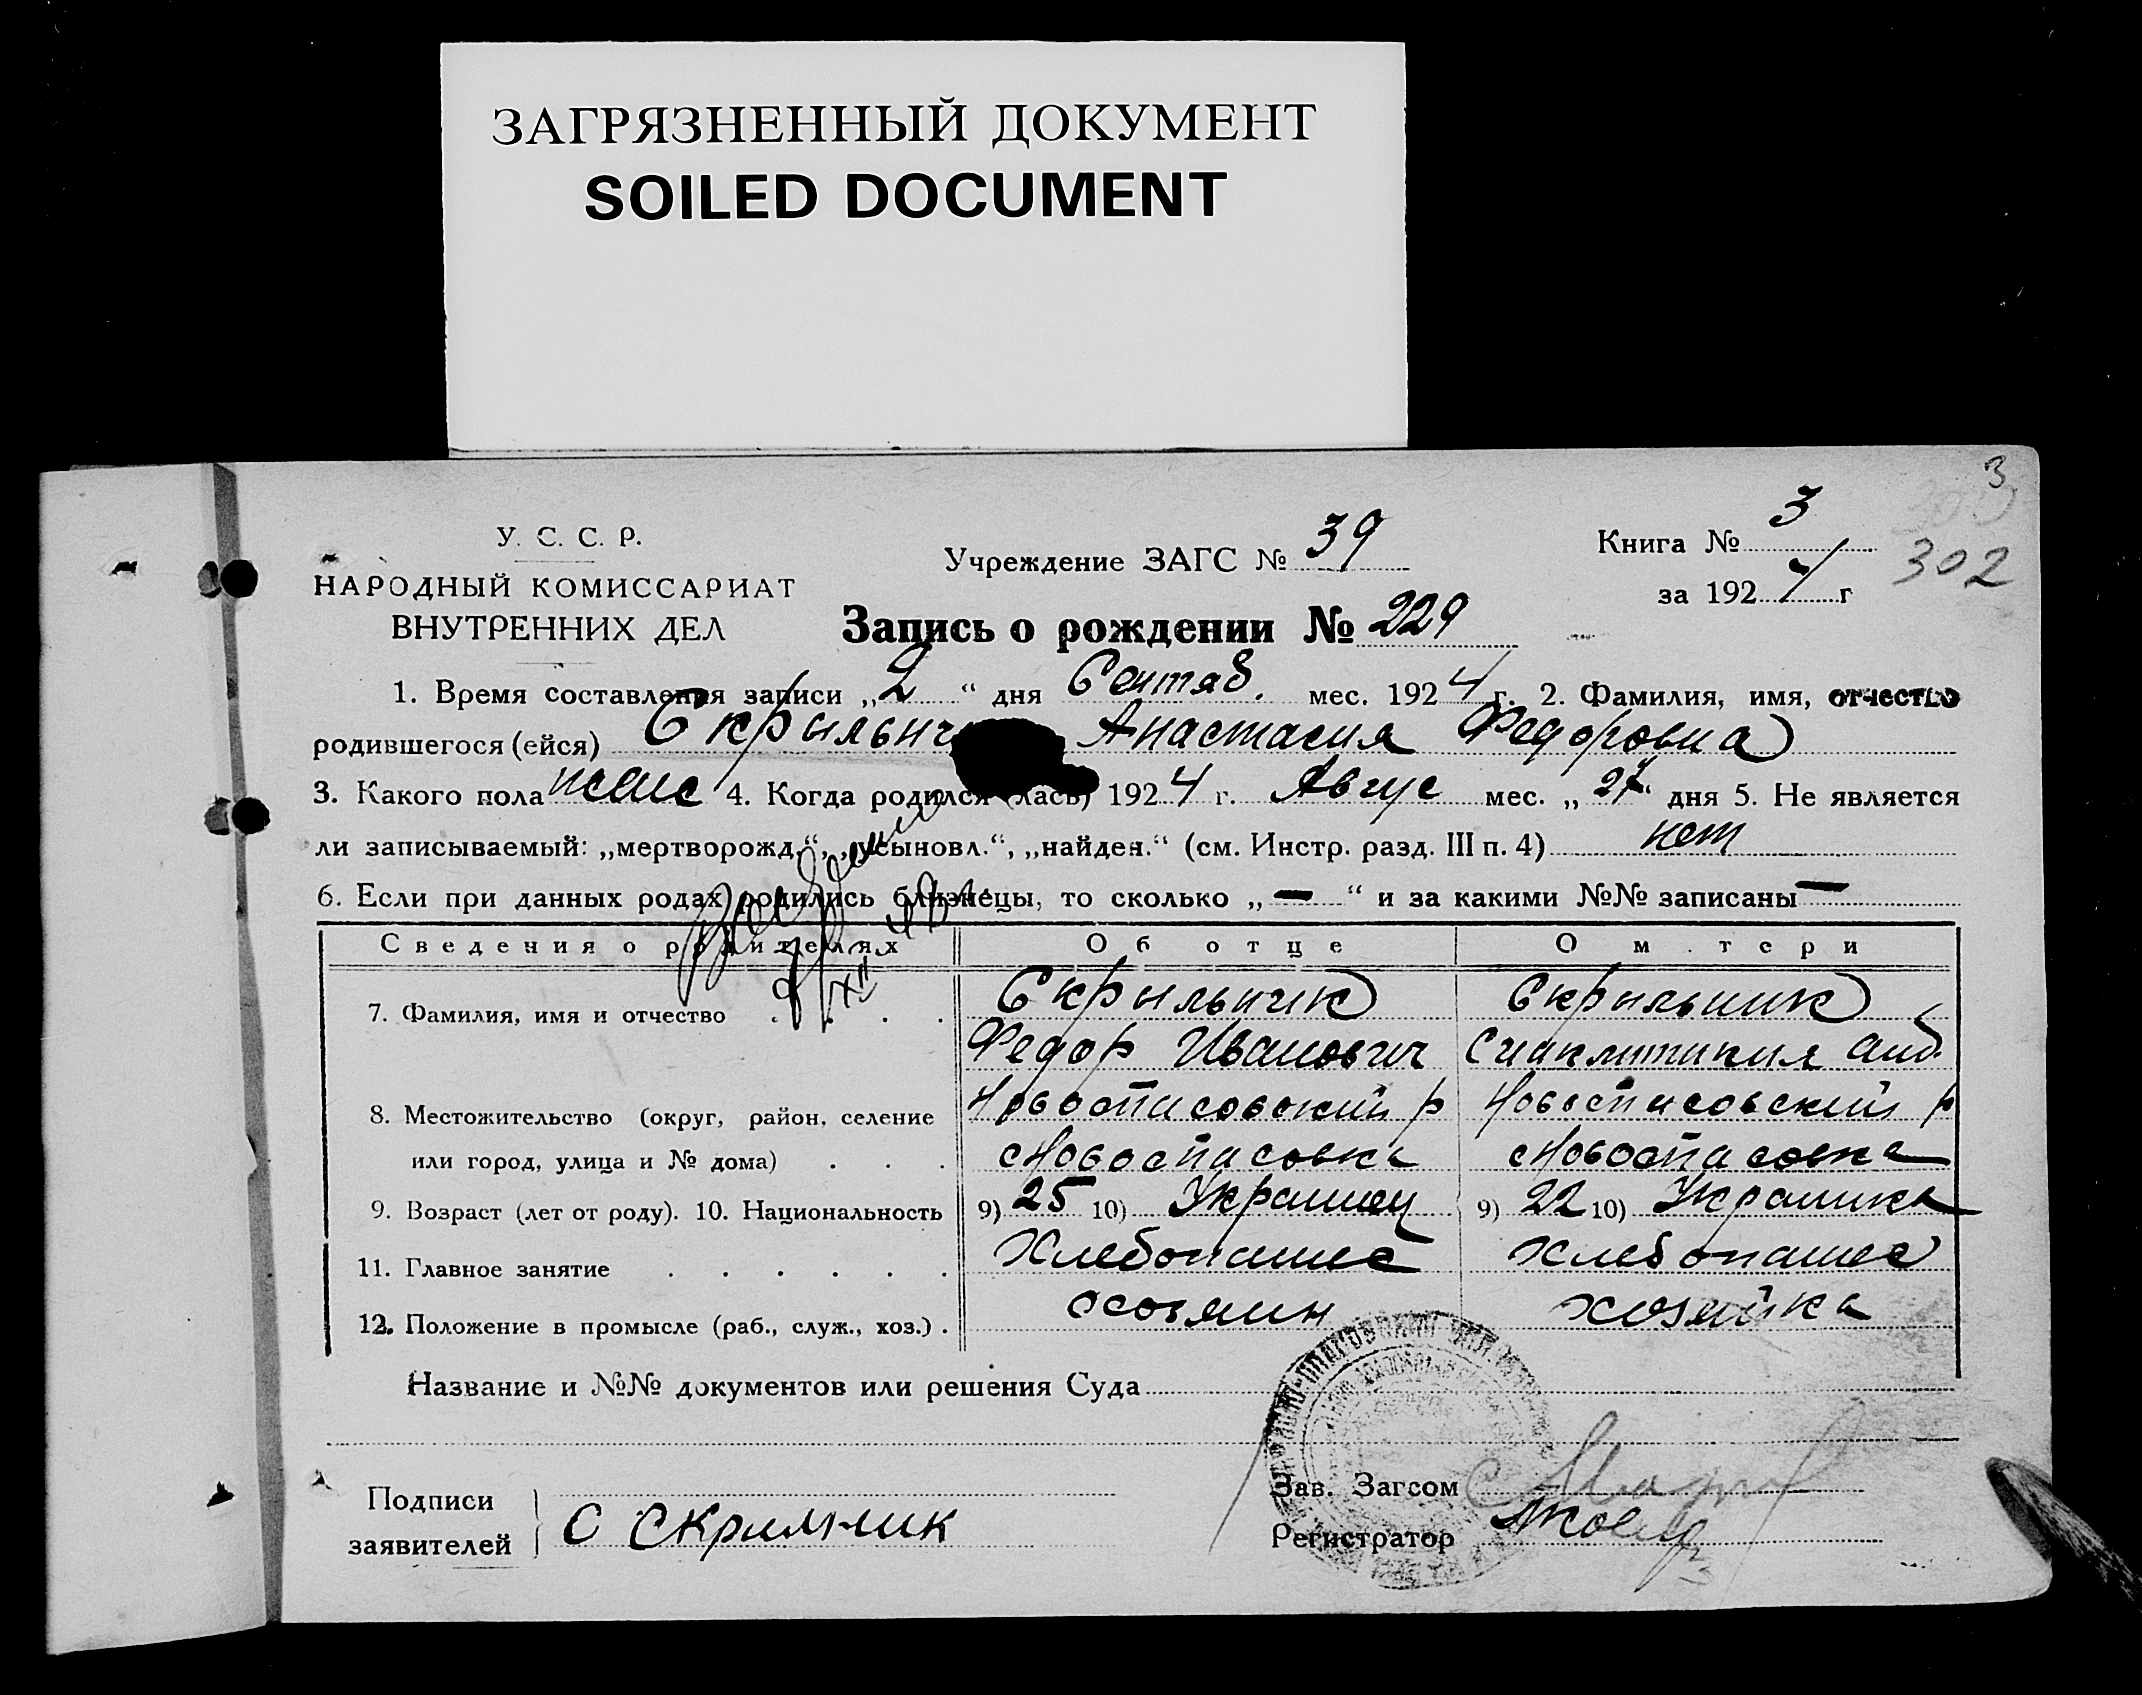 ЗАГРЯЗНЕННЫЙ ДОКУМЕНТ
SOILED DOCUMENT
3
У. С. С. Р.
НАРОДНЫЙ КОМИССАРИАТ
ВНУТРЕННИХ ДЕЛ
Учреждение ЗАГС № 39
Книга № 3
302
за 192 4 г
Запись о рождении № 229
1. Время составления записи „ 2 “ дня Сентяб. мес. 192 4 г. 2. Фамилия, имя, отчество
родившегося (ейся) Скрыльнич Анастасия Федоровна
3. Какого пола женс 4. Когда родился (лась) 192 4 г. Авгус мес. „ 27 “ дня 5. Не является
ли записываемый: „мертворожд.“, „усыновл.“, „найден.“ (см. Инстр. разд. III п. 4) нет
6. Если при данных родах родились близнецы, то сколько „ — “ и за какими №№ записаны —
Сведения о родителях Об отце О м тери
7. Фамилия, имя и отчество . . . . Скрыльник Скрыльник
Федор Иванович
8. Местожительство (округ, район, селение Новоспасовский р Новоспасовский р
или город, улица и № дома) . . . Новоспасовка Новоспасовка
9. Возраст (лет от роду). 10. Национальность 9) 25 10) Украинец 9) 22 10) Украинка
11. Главное занятие . . . . . . Хлебопашес Хлебопашес
12. Положение в промысле (раб., служ., хоз.) . хозяин хозяйка
Название и №№ документов или решения Суда
Подписи
заявителей С Скрилник
Зав. Загсом
Регистратор